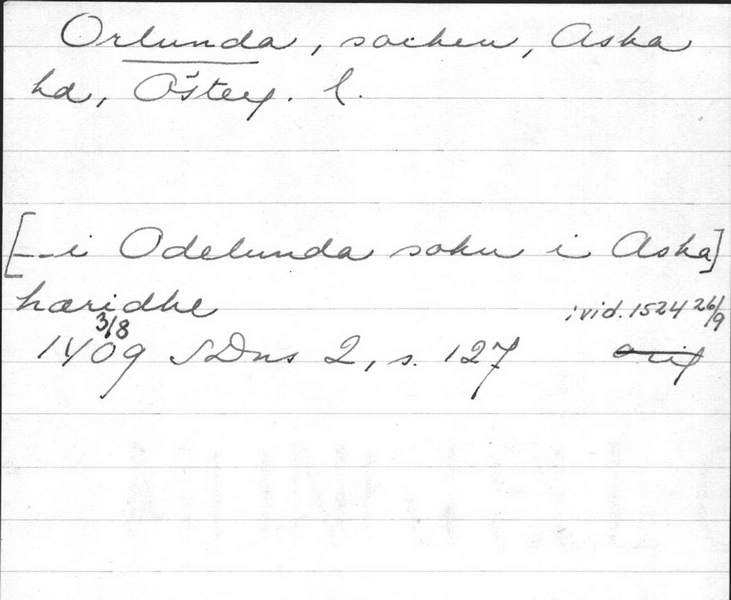 Orlunda, socken, Aska
hd, Österg. l.
[—i Odelunda sokn i Aska]
hæridhe
i vid. 1524 26/9
3/8
1409 SDns 2, s. 127 orig